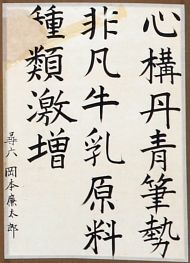 心構丹青筆勢
非凡牛乳原料
種類激増
尋六 岡本廉太郎